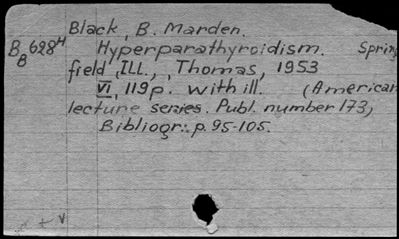 Black, B. Marden.
BB 628H Hyperparathyroidism. Spring
field, ILL., Thomas, 1953
VI, 119p. with ill. (American
lecture series. Publ. number 173)
Bibliogr.: p. 95-105.